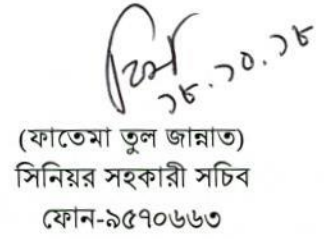 ১৮.১০.১৮
(ফাতেমা তুল জান্নাত)
সিনিয়র সহকারী সচিব
ফোন-৯৫৭০৬৬৩